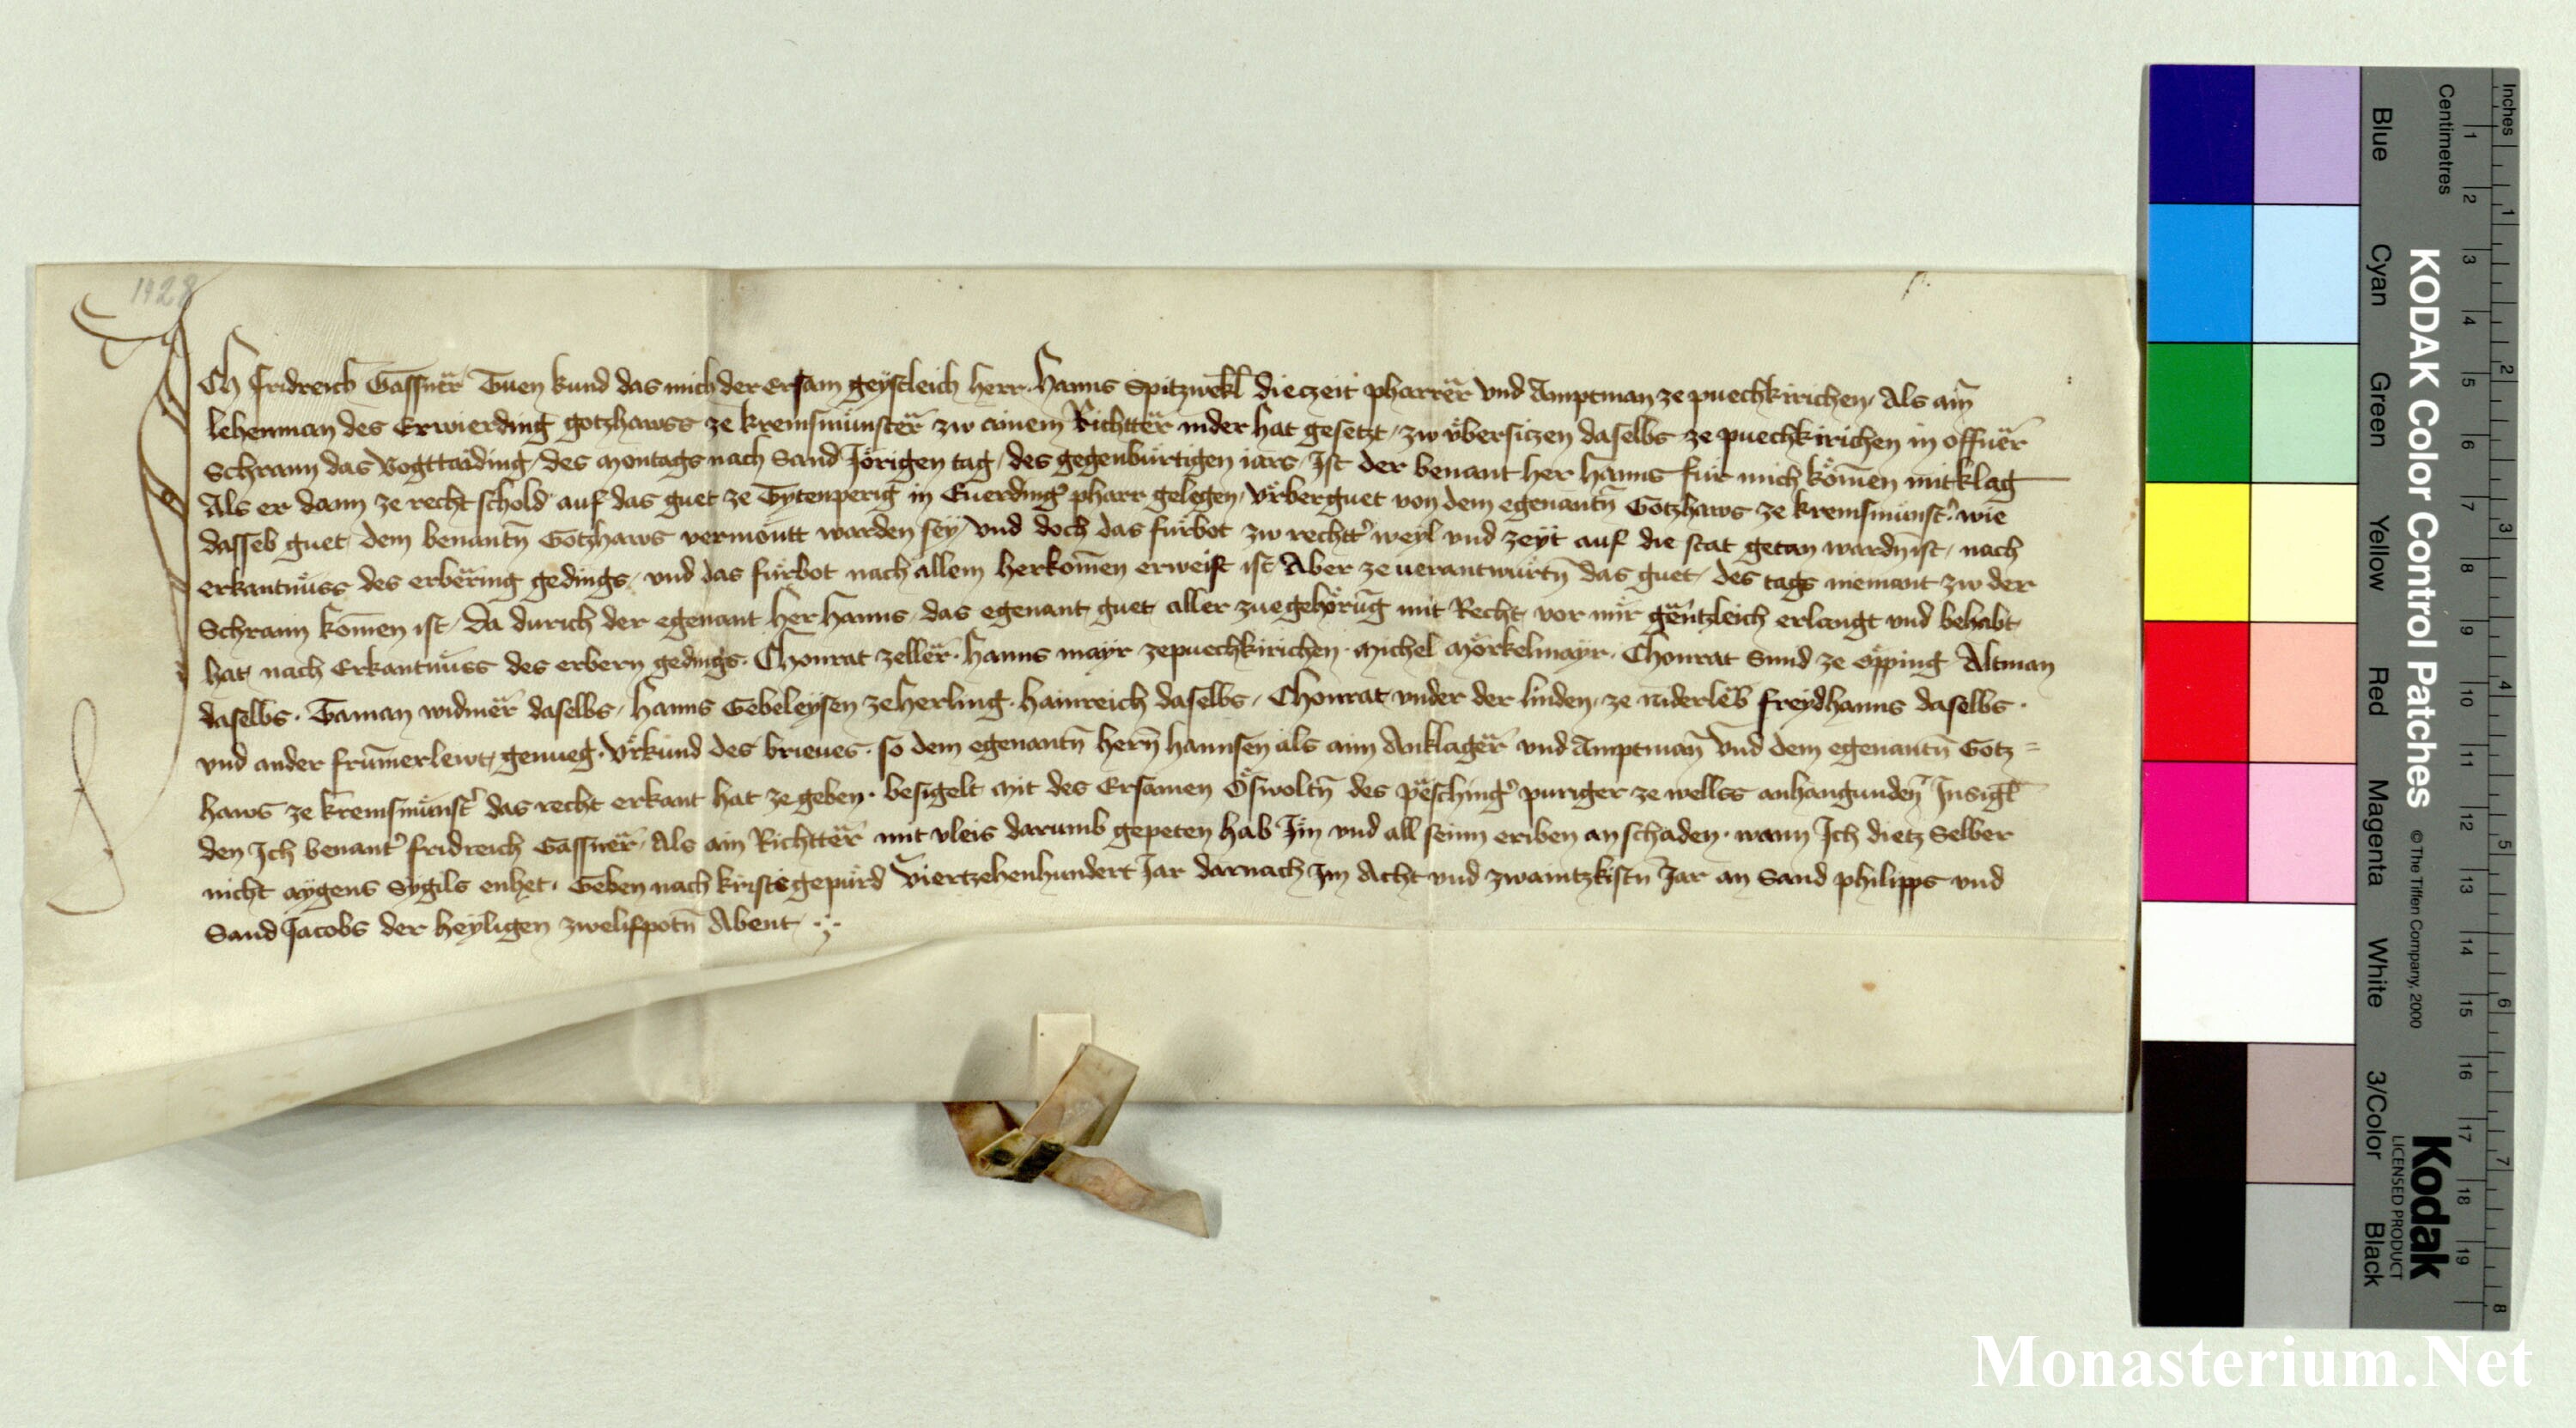 1428
ICh fridreich Gassnër Tuen kund das mich der Ersam geystleich herr. Hanns Spitzwekl die zeit pharrër vnd Amptman ze puechkirichen, Als aim̄
lehenman des Erwierding gotzhawss ze kremsmünstër zw ainem Richttër nider hat gesetzt, zw vͤbersiczen daselbs ze puechkirichen in offnër
Schrann das Vogttaiding, des montags nach Sand Jörigen tag, des gegenbürtigen iars, Ist der benant her hanns für mich kömen mit klag
Als er dann ze recht schold auf das guet ze Tytenperig in Euerding' pharr gelegen, vrberguet von dem egenantn̄ Gotzhaws ze kremsmünst'. wie
dasseb guet dem benantn̄ Gotzhaws vermöntt warden sey vnd doch das fürbot zw rechtt' weyl vnd zeyt auf die stat getan wardn̄ ist, nach
erkantnüss des erbëring gedings, vnd das fürbot nach allem herkomen erweist ist Aber ze uerantwürtn̄ das guet, des tags niemant zw der
Schrann komen ist, Da durich der egenant her hanns, das egenant guet aller zuegehörūg mit Recht, vor mir gëntzleich erlangt vnd behabt
hat, nach Erkantnüss des erbern gedings. Chonrat zellër. hanns mayr zepuechkirichen. michel mörkelmayr. Chonrat Sund ze öpping Altman
daselbs. Taman widmër daselbs, hanns Gebeleysen ze herling. hainreich daselbs, Chonrat vnder der linden, ze niderleb freydhanns daselbs.
vnd ander frūmer lewt, genueg. vrkund des brieues. so dem egenantn̄ hern̄ hannsen als aim Anklagër vnd Amptman̄ vnd dem egenantn̄ Gotz=
haws ze kremsmünst' das recht erkant hat ze geben. besigelt mit des Ersamen Öswoltn̄ des pësching' puriger ze wellss anhangunden̄ Insigl
den Ich benant' fridreich Gassnër, Als ain Richttër mit vleis darumb gepeten hab Im vnd all seinn eriben an schaden. wann Ich dietz Selber
nicht aygens Sygils enhet. Geben nach kristsgepürd viertzehenhundert Jar darnach Im Acht vnd zwaintzkistn̄ Jar an Sand philipps vnd
Sand Jacobs der heyligen zwelifpotn̄ Abent
Inches
Centimetres
1 2 3 4 5 6 7 8 9 10 11 12 13 14 15 16 17 18 19
1 2 3 4 5 6 7 8
KODAK Color Control Patches © The Tiffen Company, 2000
Kodak
LICENSED PRODUCT
Blue Cyan Green Yellow Red Magenta White 3/Color Black
Monasterium.Net